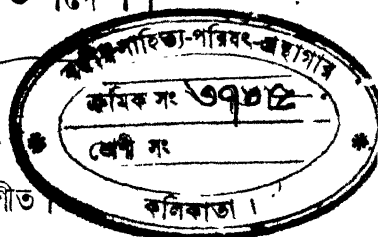 বঙ্গীয়-সাহিত্য-পরিষৎ-গ্রন্থাগার
ক্রমিক সং ৩৭৮৫
শ্রেণী সং
কলিকাতা ।
ণীত ।